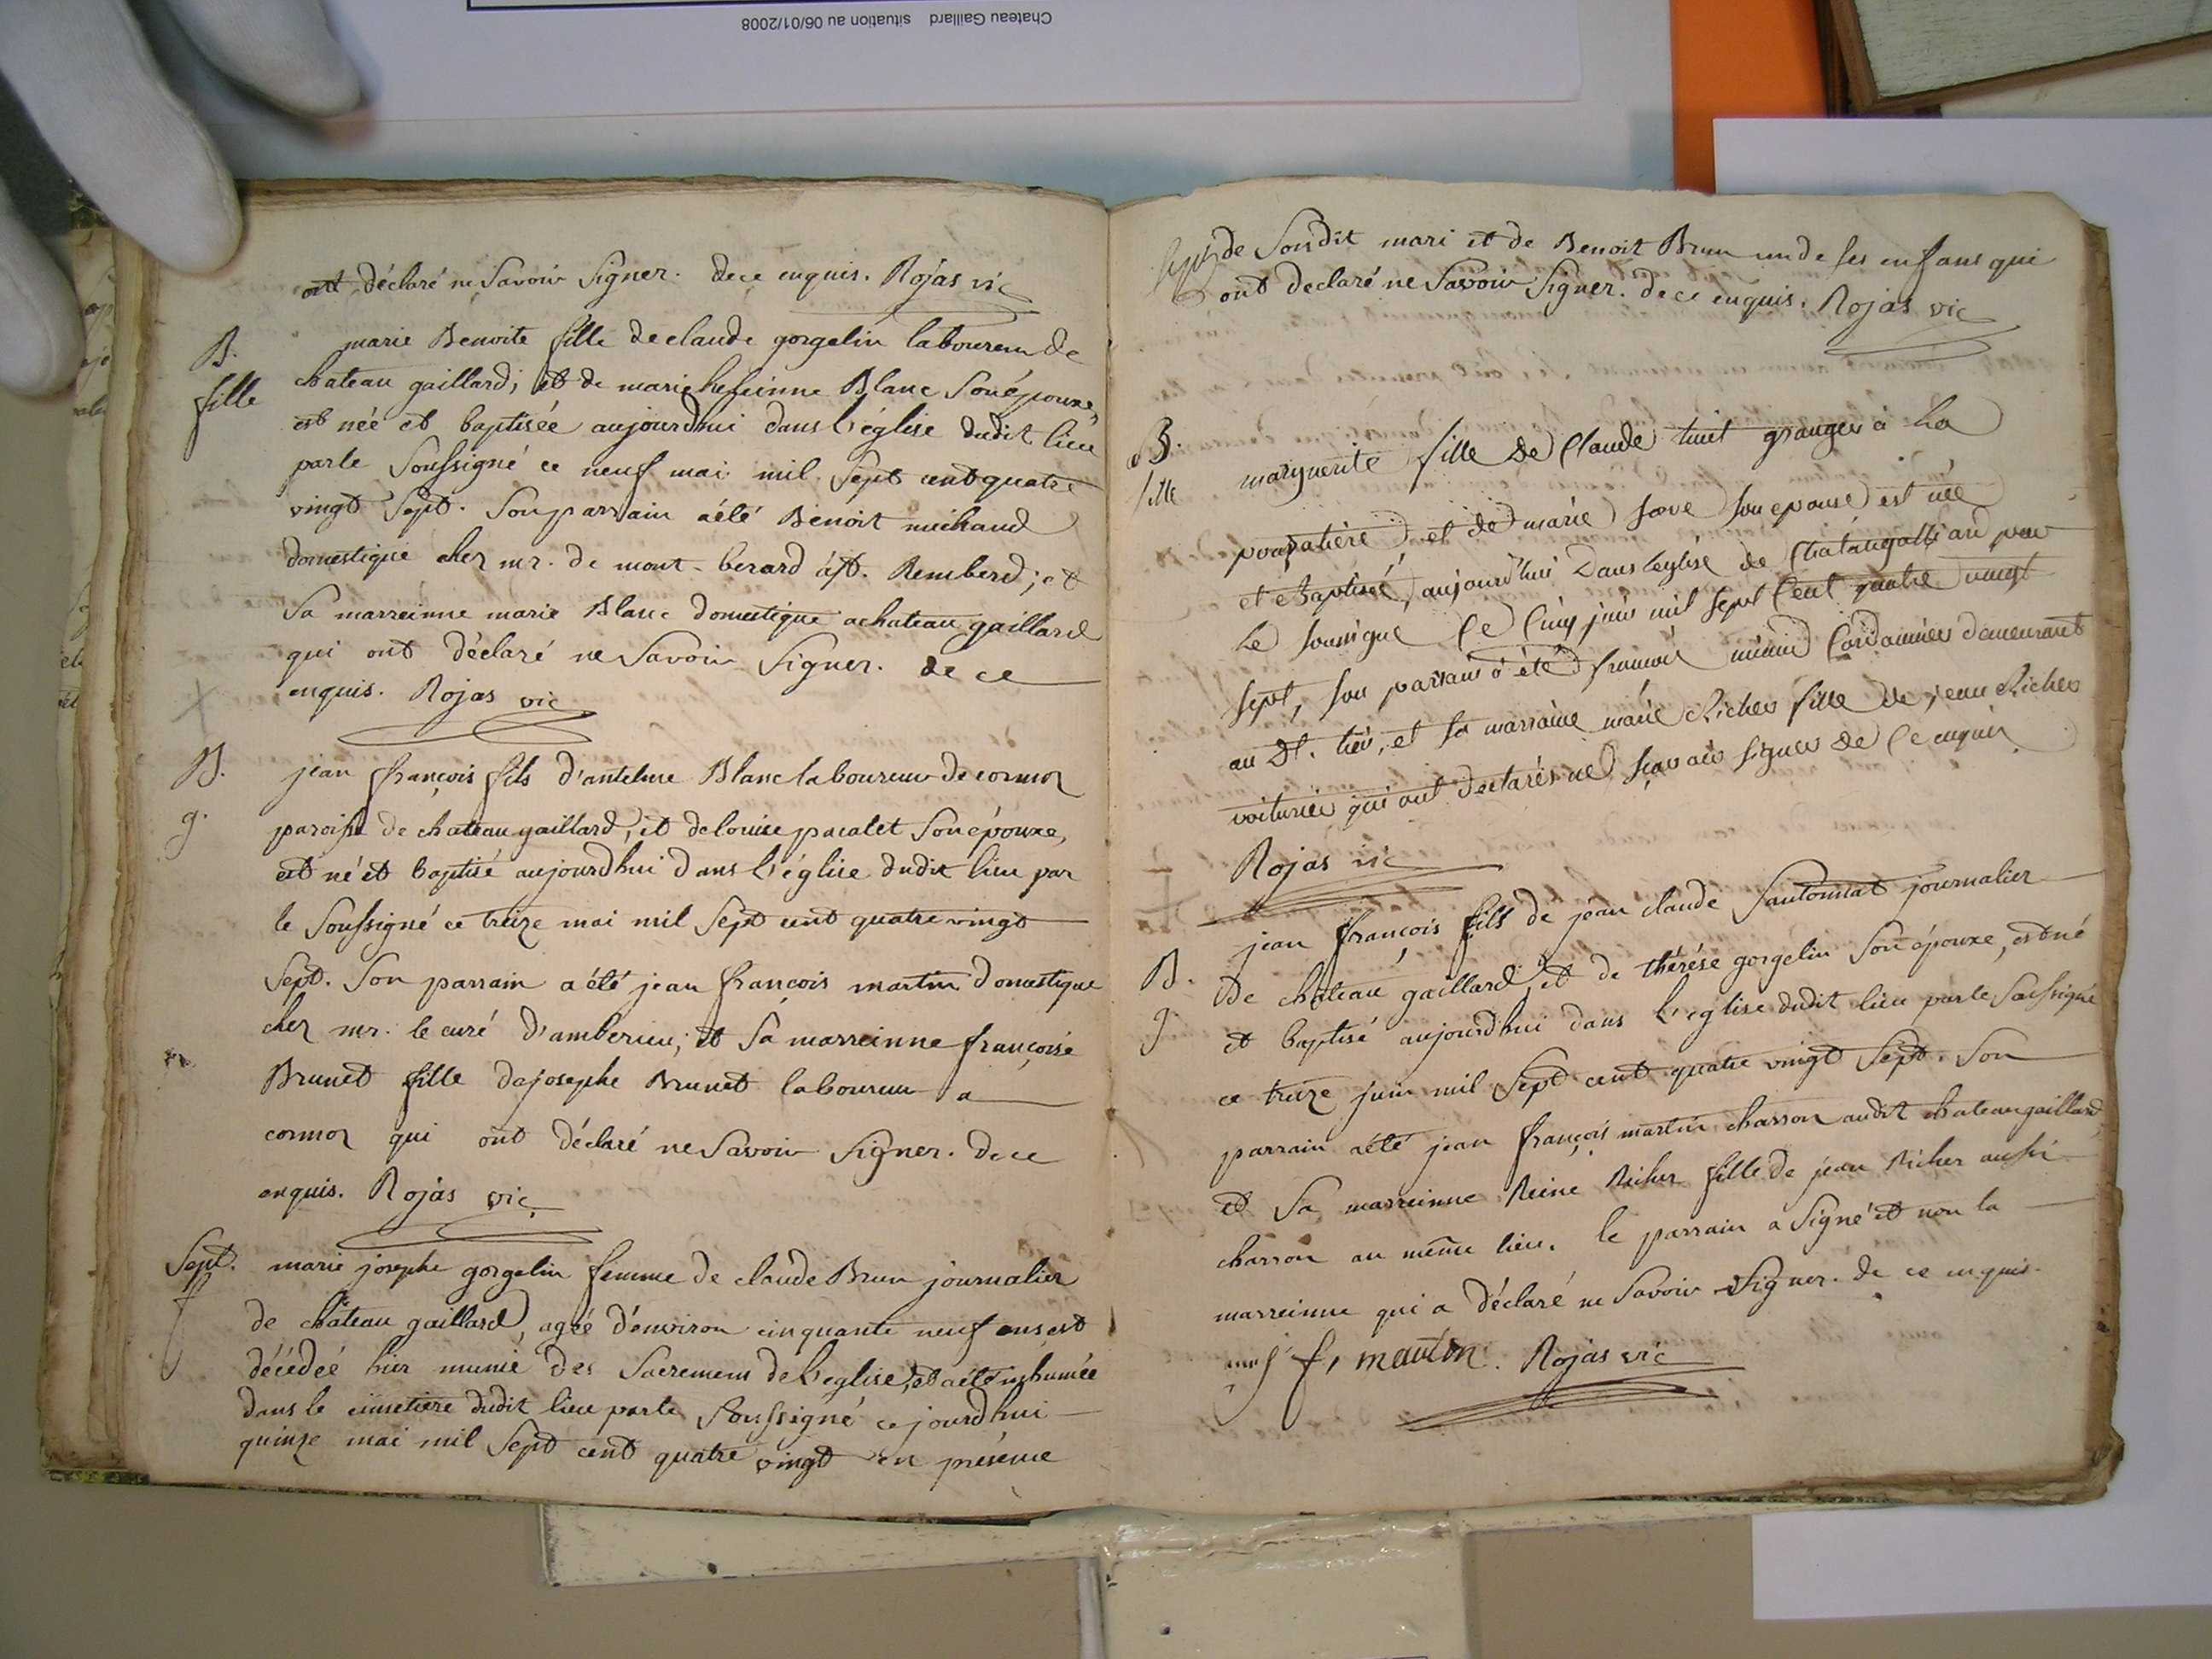 Chateau Gaillard situation au 06/01/2008
ont déclaré ne Savoir Signer. de ce enquis. Rojas vic
B.
fille
marie Benoite fille de claude gorgelin laboureur de
chateau gaillard; et de marie Blanc Son épouxe,
est née et baptisée aujourdhui dans l'église dudit lieu
par le Soussigné ce neuf mai mil Sept cent quatre
vingt Sept. Son parrain a été Benoit michaud
domestique chez mr. de mont-berard à st. Remberd; et
Sa marreinne marie Blanc domestique a chateau gaillard
qui ont déclaré ne Savoir Signer. de ce
enquis. Rojas vic
B.
g.
jean françois fils d'antelme Blanc laboureur de cormoz
paroisse de chateau gaillard, et de louise pacalet Son épouxe,
est né et baptisé aujourdhui dans l'église dudit lieu par
le Soussigné ce treize mai mil Sept cent quatre vingt
Sept. Son parrain a été jean françois martin domestique
chez mr. le curé d'amberieu; et Sa marreinne françoise
Brunet fille de josephe Brunet laboureur a
cormoz qui ont déclaré ne Savoir Signer. de ce
enquis. Rojas vic
Sept.
f
marie josephe gorgelin femme de claude Brun journalier
de château gaillard, agée d'environ cinquante neuf ans est
décédeé hier munie des Sacremens de l'eglise, et a été inhumée
dans le cimetiere dudit lieu par le Soussigné ce jourdhui
quinze mai mil Sept cent quatre vingt en présence
Sept. de Son dit mari et de Benoit Brun un de ses enfans qui
ont declaré ne Savoir Signer. de ce enquis. Rojas vic
B.
fille
marguerite fille de Claude granger à La
et de marie son epouse est née
et Baptisée, aujourd'hui Dans leglise de par
Le sousigné Ce Cinq juin mil sept Cent quatre vingt
sept, son parrain a été françois Cordonnier demeurant
au dt. lieu, et sa marraine marie Richer fille de jean Richer
voiturier qui ont declarés ne sçavoir signer de Ce enquis
Rojas vic
B.
g.
jean françois fils de jean claude Santonnat journalier
de château gaillard, et de thérése gorgelin Son épouxe, est né
et baptisé aujourdhui dans l'eglise dudit lieu par le Soussigné
ce treize juin mil Sept cent quatre vingt Sept. Son
parrain a été jean françois martin charron audit chateau gaillard
et Sa marreinne Reine Richer fille de jean Richer aussi
charron au même lieu. le parrain a Signé et non la
marreinne qui a déclaré ne Savoir Signer. de ce enquis.
f, martin. Rojas vic